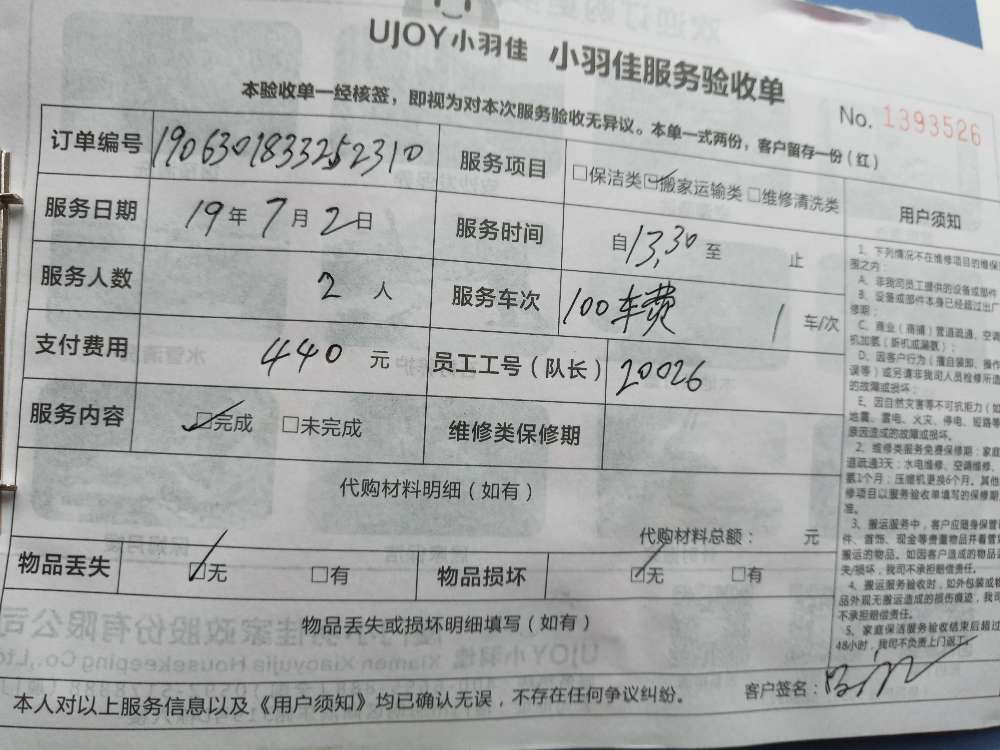 UJOY小羽佳 小羽佳服务验收单
本验收单一经核签，即视为对本次服务验收无异议。本单一式两份，客户留存一份（红）
No. 1393526
订单编号 1906301833252310 服务项目 □保洁类 ☑搬家运输类 □维修清洗类
服务日期 19年7月2日 服务时间 自13:30至 止
服务人数 2人 服务车次 100车费 1车/次
支付费用 440元 员工工号（队长） 20026
服务内容 ☑完成 □未完成 维修类保修期
代购材料明细（如有）
代购材料总额： 元
物品丢失 ☑无 □有 物品损坏 ☑无 □有
物品丢失或损坏明细填写（如有）
本人对以上服务信息以及《用户须知》均已确认无误，不存在任何争议纠纷。
客户签名：
用户须知
1、下列情况不在维修项目的维保
围之内：
A、非我司员工提供的设备或部件
B、设备或部件本身已经超过出厂
修期；
C、商业（商铺）管道疏通、空调
机加氨（新机或漏氨）；
D、因客户行为（擅自装卸、操作
误等）或另请非我司人员检修所造
的故障或损坏；
E、因自然灾害等不可抗拒力（如
地震、雷电、火灾、停电、短路等
原因造成的故障或损坏。
2、维修类服务免费保修期：家庭
道疏通3天；水电维修、空调维修、
氨1个月；压缩机更换6个月。其他
修项目以服务验收单填写的保修期
准。
3、搬运服务中，客户应随身保管
件、首饰、现金等贵重物品并看管
搬运的物品。如因客户造成的物品
失/损坏，我司不承担赔偿责任。
4、搬运服务验收时，如外包装或物
品外观无搬运造成的损伤痕迹，我司
不承担赔偿责任。
5、家庭保洁服务验收结束后超过
48小时，我司不负责上门返工。